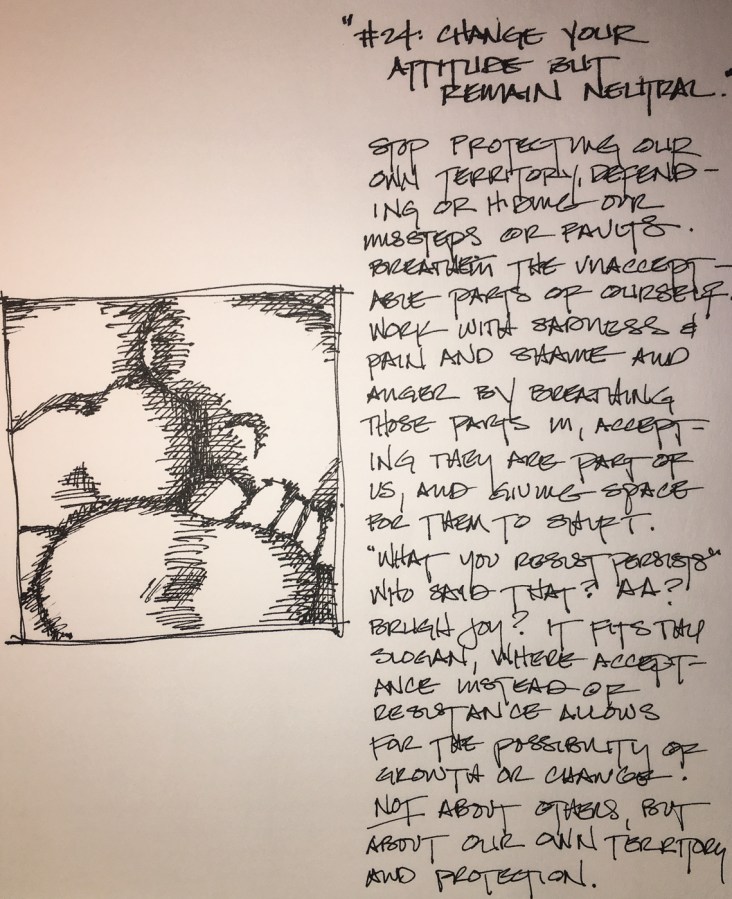 "#24: CHANGE YOUR
ATTITUDE BUT
REMAIN NEUTRAL."
STOP PROTECTING OUR
OWN TERRITORY, DEFEND-
ING OR HIDING OUR
MISSTEPS OR FAULTS.
BREATHE IN THE UNACCEPT-
ABLE PARTS OF OURSELF.
WORK WITH SADNESS &
PAIN AND SHAME AND
ANGER BY BREATHING
THOSE PARTS IN, ACCEPT-
ING THEY ARE PART OF
US, AND GIVING SPACE
FOR THEM TO SHIFT.
"WHAT YOU RESIST PERSISTS"
WHO SAID THAT? AA?
BRUGH JOY? IT FITS THIS
SLOGAN, WHERE ACCEPT-
ANCE INSTEAD OF
RESISTANCE ALLOWS
FOR THE POSSIBILITY OF
GROWTH OR CHANGE.
NOT ABOUT OTHERS, BUT
ABOUT OUR OWN TERRITORY
AND PROTECTION.